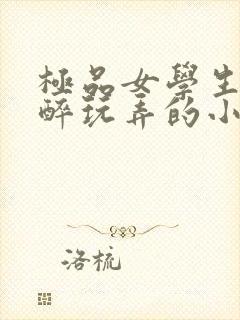 極品女學生
醉玩弄的小
洛梳